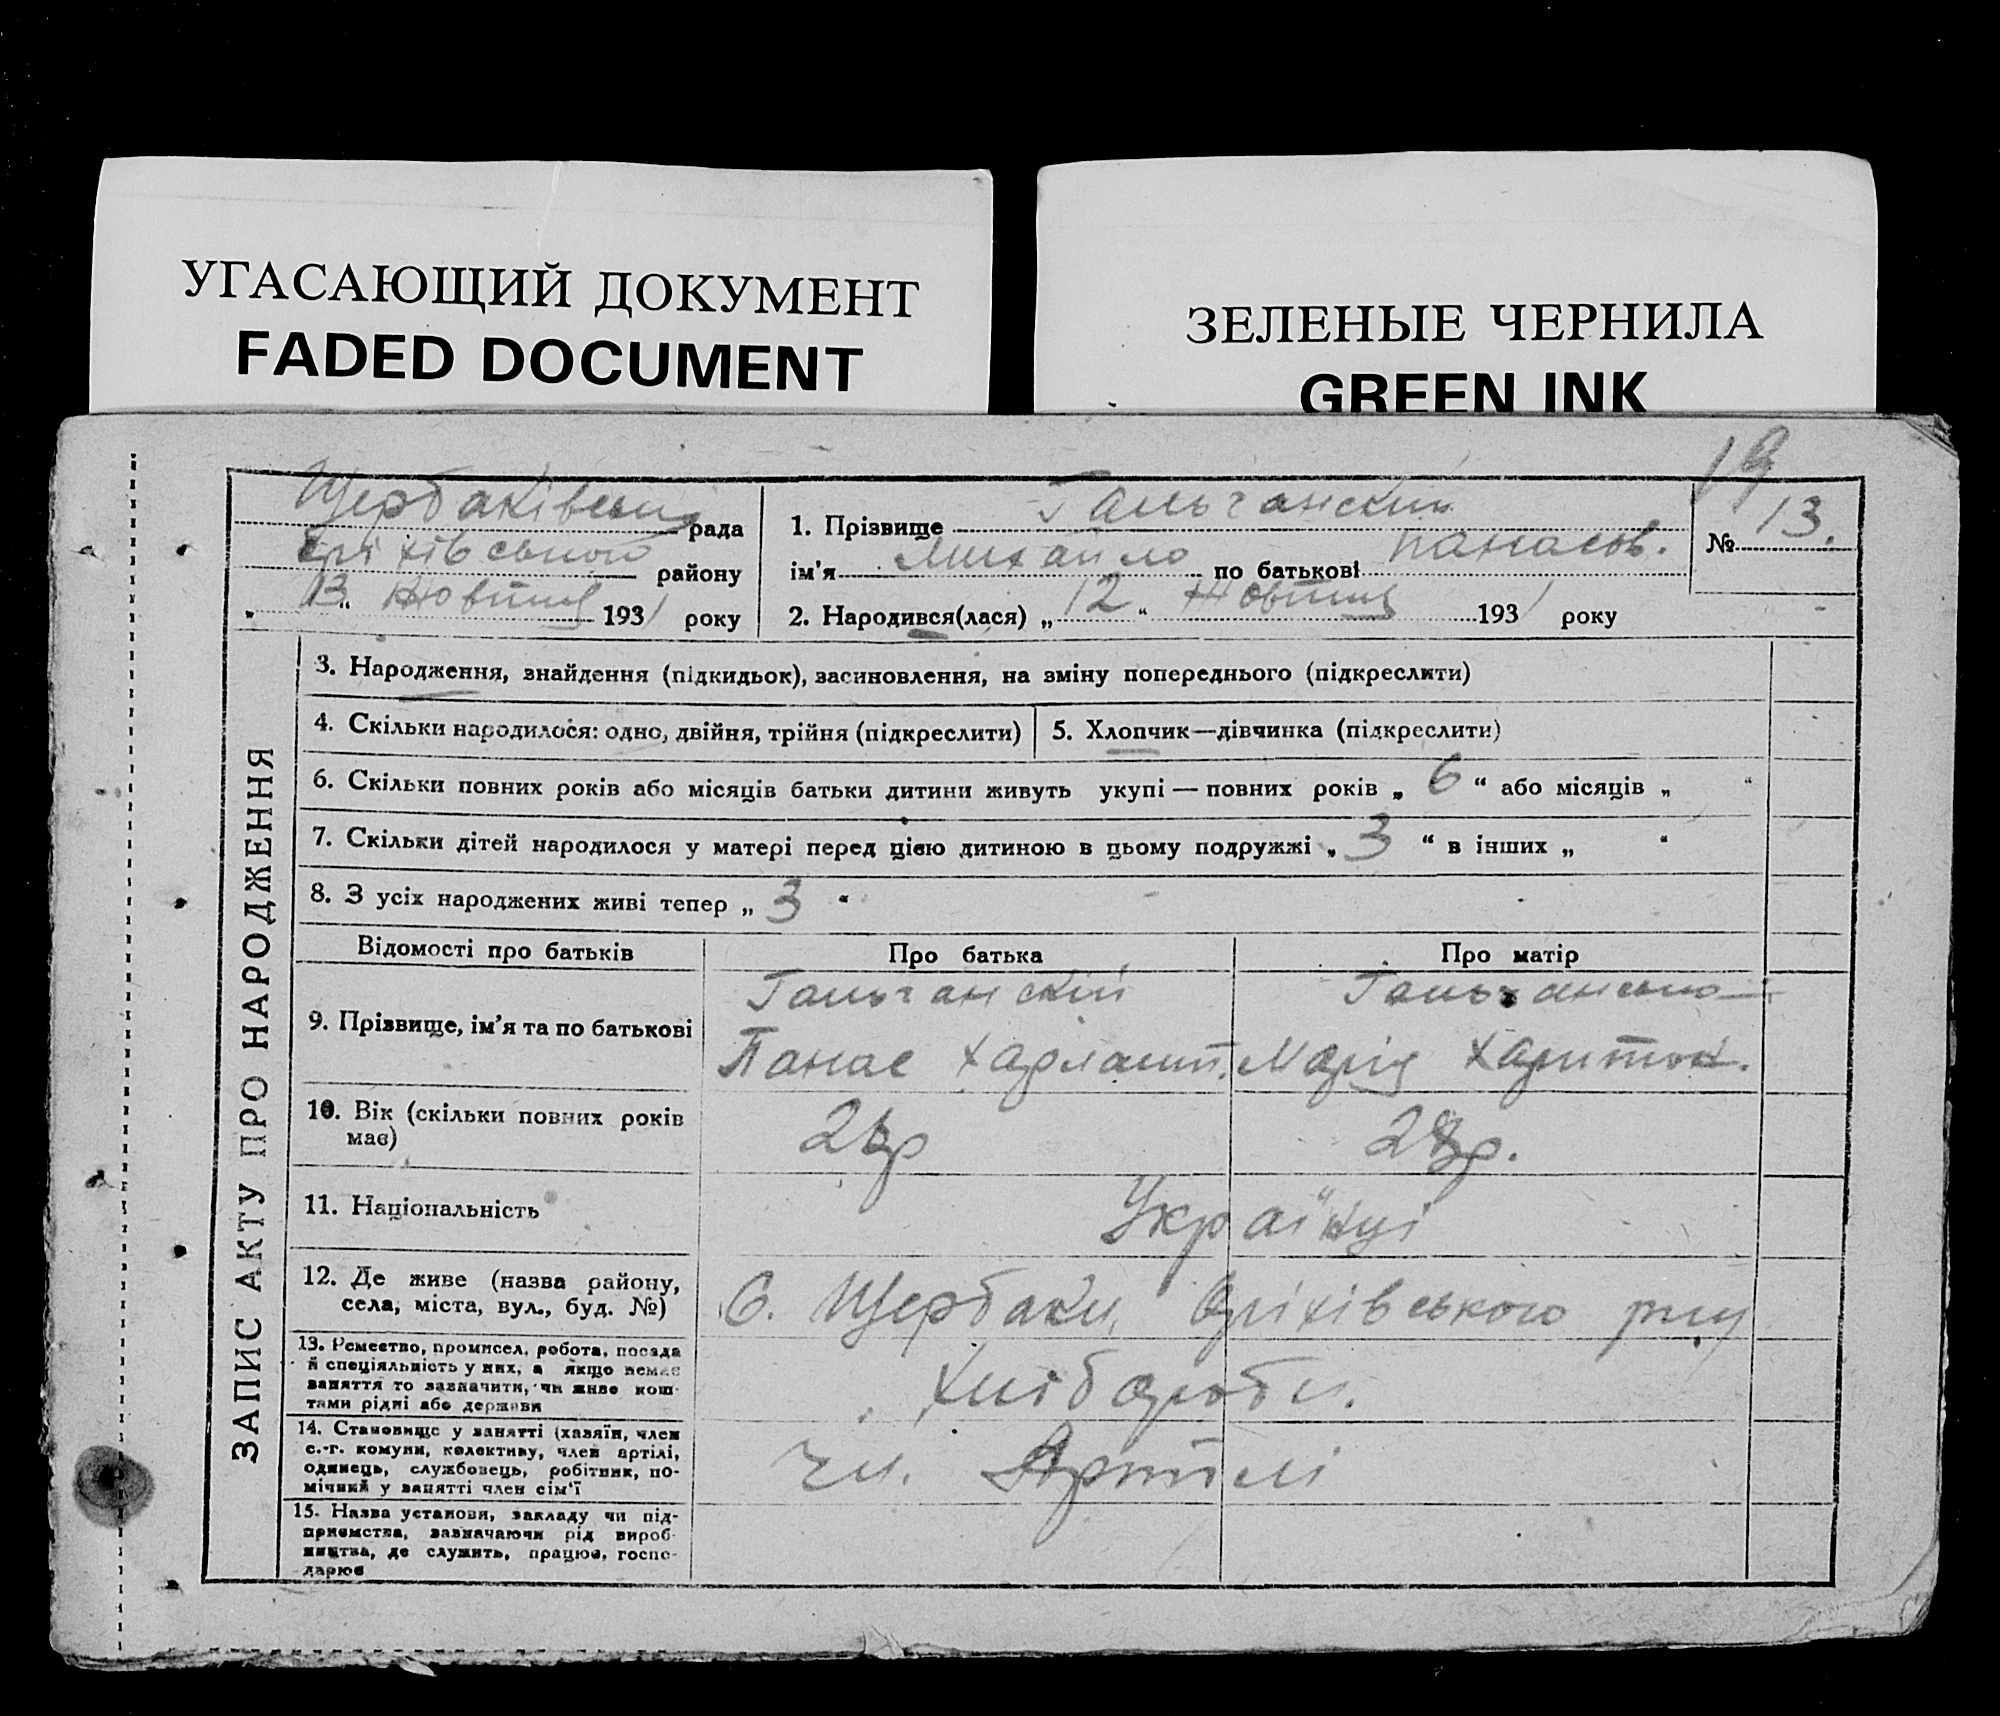 УГАСАЮЩИЙ ДОКУМЕНТ
FADED DOCUMENT
ЗЕЛЕНЫЕ ЧЕРНИЛА
GREEN INK
19
Щербаківська рада
Оріхівського району
„13“ Жовтня 1931 року
1. Прізвище Гальчанский
ім'я Михайло по батькові Панасов.
№ 13.
2. Народився(лася) „12“ Жовтня 1931 року
ЗАПИС АКТУ ПРО НАРОДЖЕННЯ
3. Народження, знайдення (підкидьок), засиновлення, на зміну попереднього (підкреслити)
4. Скільки народилося: одно, двійня, трійня (підкреслити)
5. Хлопчик—дівчинка (підкреслити)
6. Скільки повних років або місяців батьки дитини живуть укупі — повних років „ 6 “ або місяців „ “
7. Скільки дітей народилося у матері перед цією дитиною в цьому подружжі „ 3 “ в інших „ “
8. З усіх народжених живі тепер „ 3 “
Відомості про батьків
Про батька
Про матір
9. Прізвище, ім'я та по батькові
Гальчанскій
Панас Харламп.
Гальчансько
Марія Харитон.
10. Вік (скільки повних років
має)
28р.
11. Національність
Українці
12. Де живе (назва району,
села, міста, вул., буд. №)
С. Щербаки, Оріхівського р-ну
13. Ремество, промисел, робота, посада
й спеціяльність у них, а якщо немає
заняття то зазначити, чи живе кош-
тами рідні або держави
Хлібороби.
14. Становище у занятті (хазяїн, член
с.-г. комуни, колективу, член артілі,
одинець, службовець, робітник, по-
мічний у занятті член сім'ї
чл. Артілі
15. Назва установи, закладу чи під-
приємства, зазначаючи рід вироб-
ництва, де служить, працює, госпо-
дарює